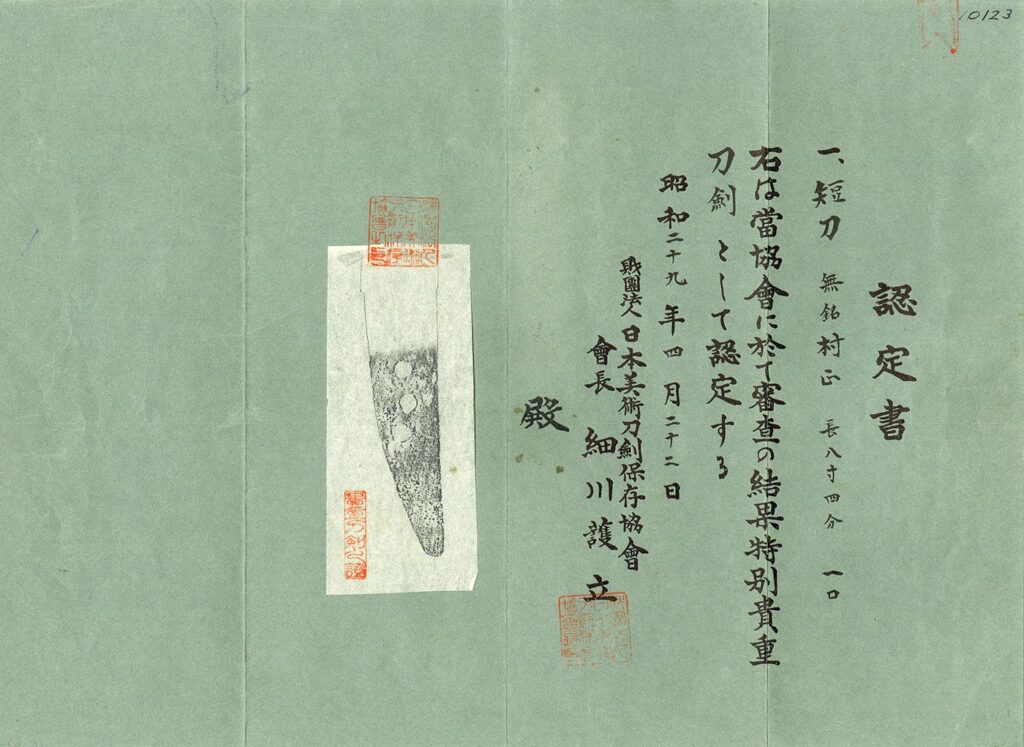 10123
認定書
一、短刀 無銘村正 長八寸四分 一口
右は當協會に於て審査の結果特別貴重
刀劍として認定する
昭和二十九年四月二十二日
財團法人日本美術刀劍保存協會
會長 細川護立
殿